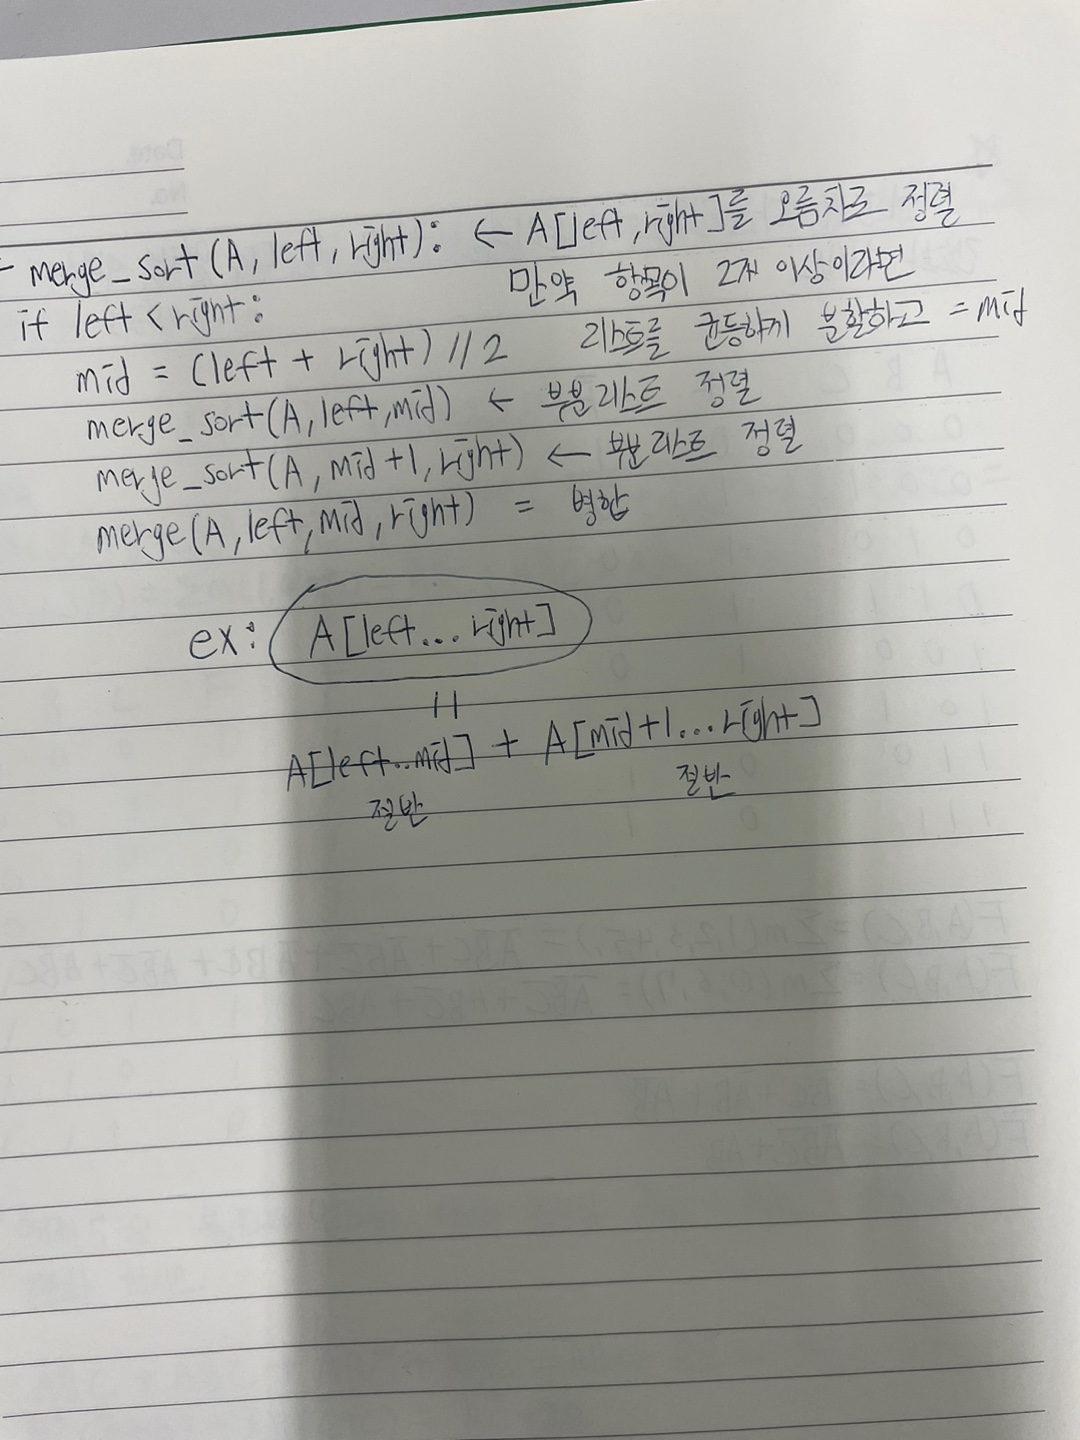 merge_sort(A, left, right): ← A[left, right]를 오름차로 정렬
if left < right: 만약 항목이 2개 이상이라면
mid = (left + right) // 2 리스트를 균등하게 분할하고 = mid
merge_sort(A, left, mid) ← 부분리스트 정렬
merge_sort(A, mid+1, right) ← 부분리스트 정렬
merge(A, left, mid, right) = 병합
ex: A[left... right]
=
A[left..mid] + A[mid+1...right]
절반 절반